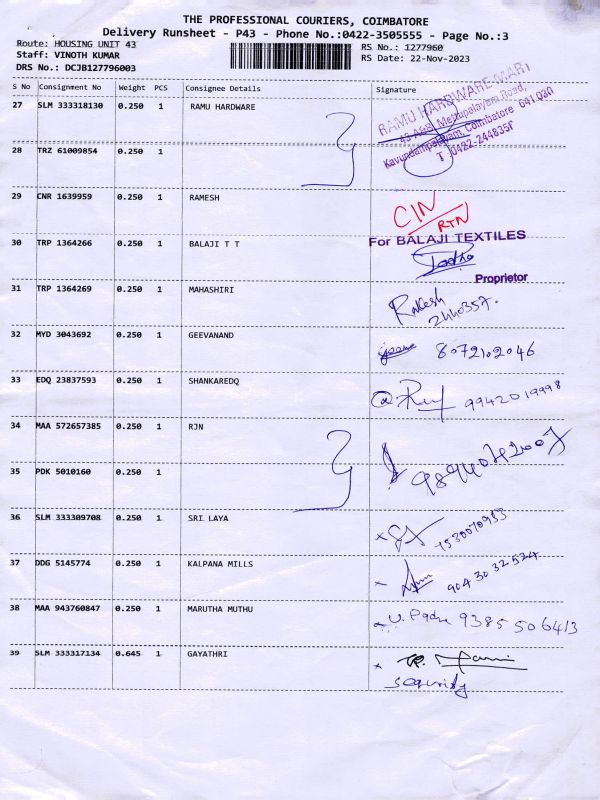 THE PROFESSIONAL COURIERS, COIMBATORE
Delivery Runsheet - P43 - Phone No.:0422-3505555 - Page No.:3
Route: HOUSING UNIT 43
Staff: VINOTH KUMAR
DRS No.: DCJB127796003
RS No.: 1277960
RS Date: 22-Nov-2023
S No Consignment No Weight PCS Consignee Details Signature
27 SLM 333318130 0.250 1 RAMU HARDWARE
RAMU HARDWARE MART
Mettupalayam Road,
Kavundampalayam, Coimbatore 641 030
28 TRZ 61009854 0.250 1
29 CNR 1639959 0.250 1 RAMESH
CIN
RTN
30 TRP 1364266 0.250 1 BALAJI T T
For BALAJI TEXTILES
Proprietor
31 TRP 1364269 0.250 1 MAHASHIRI
Rakesh
2440357.
32 MYD 3043692 0.250 1 GEEVANAND
8072102046
33 EDQ 23837593 0.250 1 SHANKAREDQ
9942019998
34 MAA 572657385 0.250 1 RJN
35 PDK 5010160 0.250 1
36 SLM 333309708 0.250 1 SRI LAYA
37 DDG 5145774 0.250 1 KALPANA MILLS
9043032524
38 MAA 943760847 0.250 1 MARUTHA MUTHU
9385506413
39 SLM 333317134 0.645 1 GAYATHRI
security